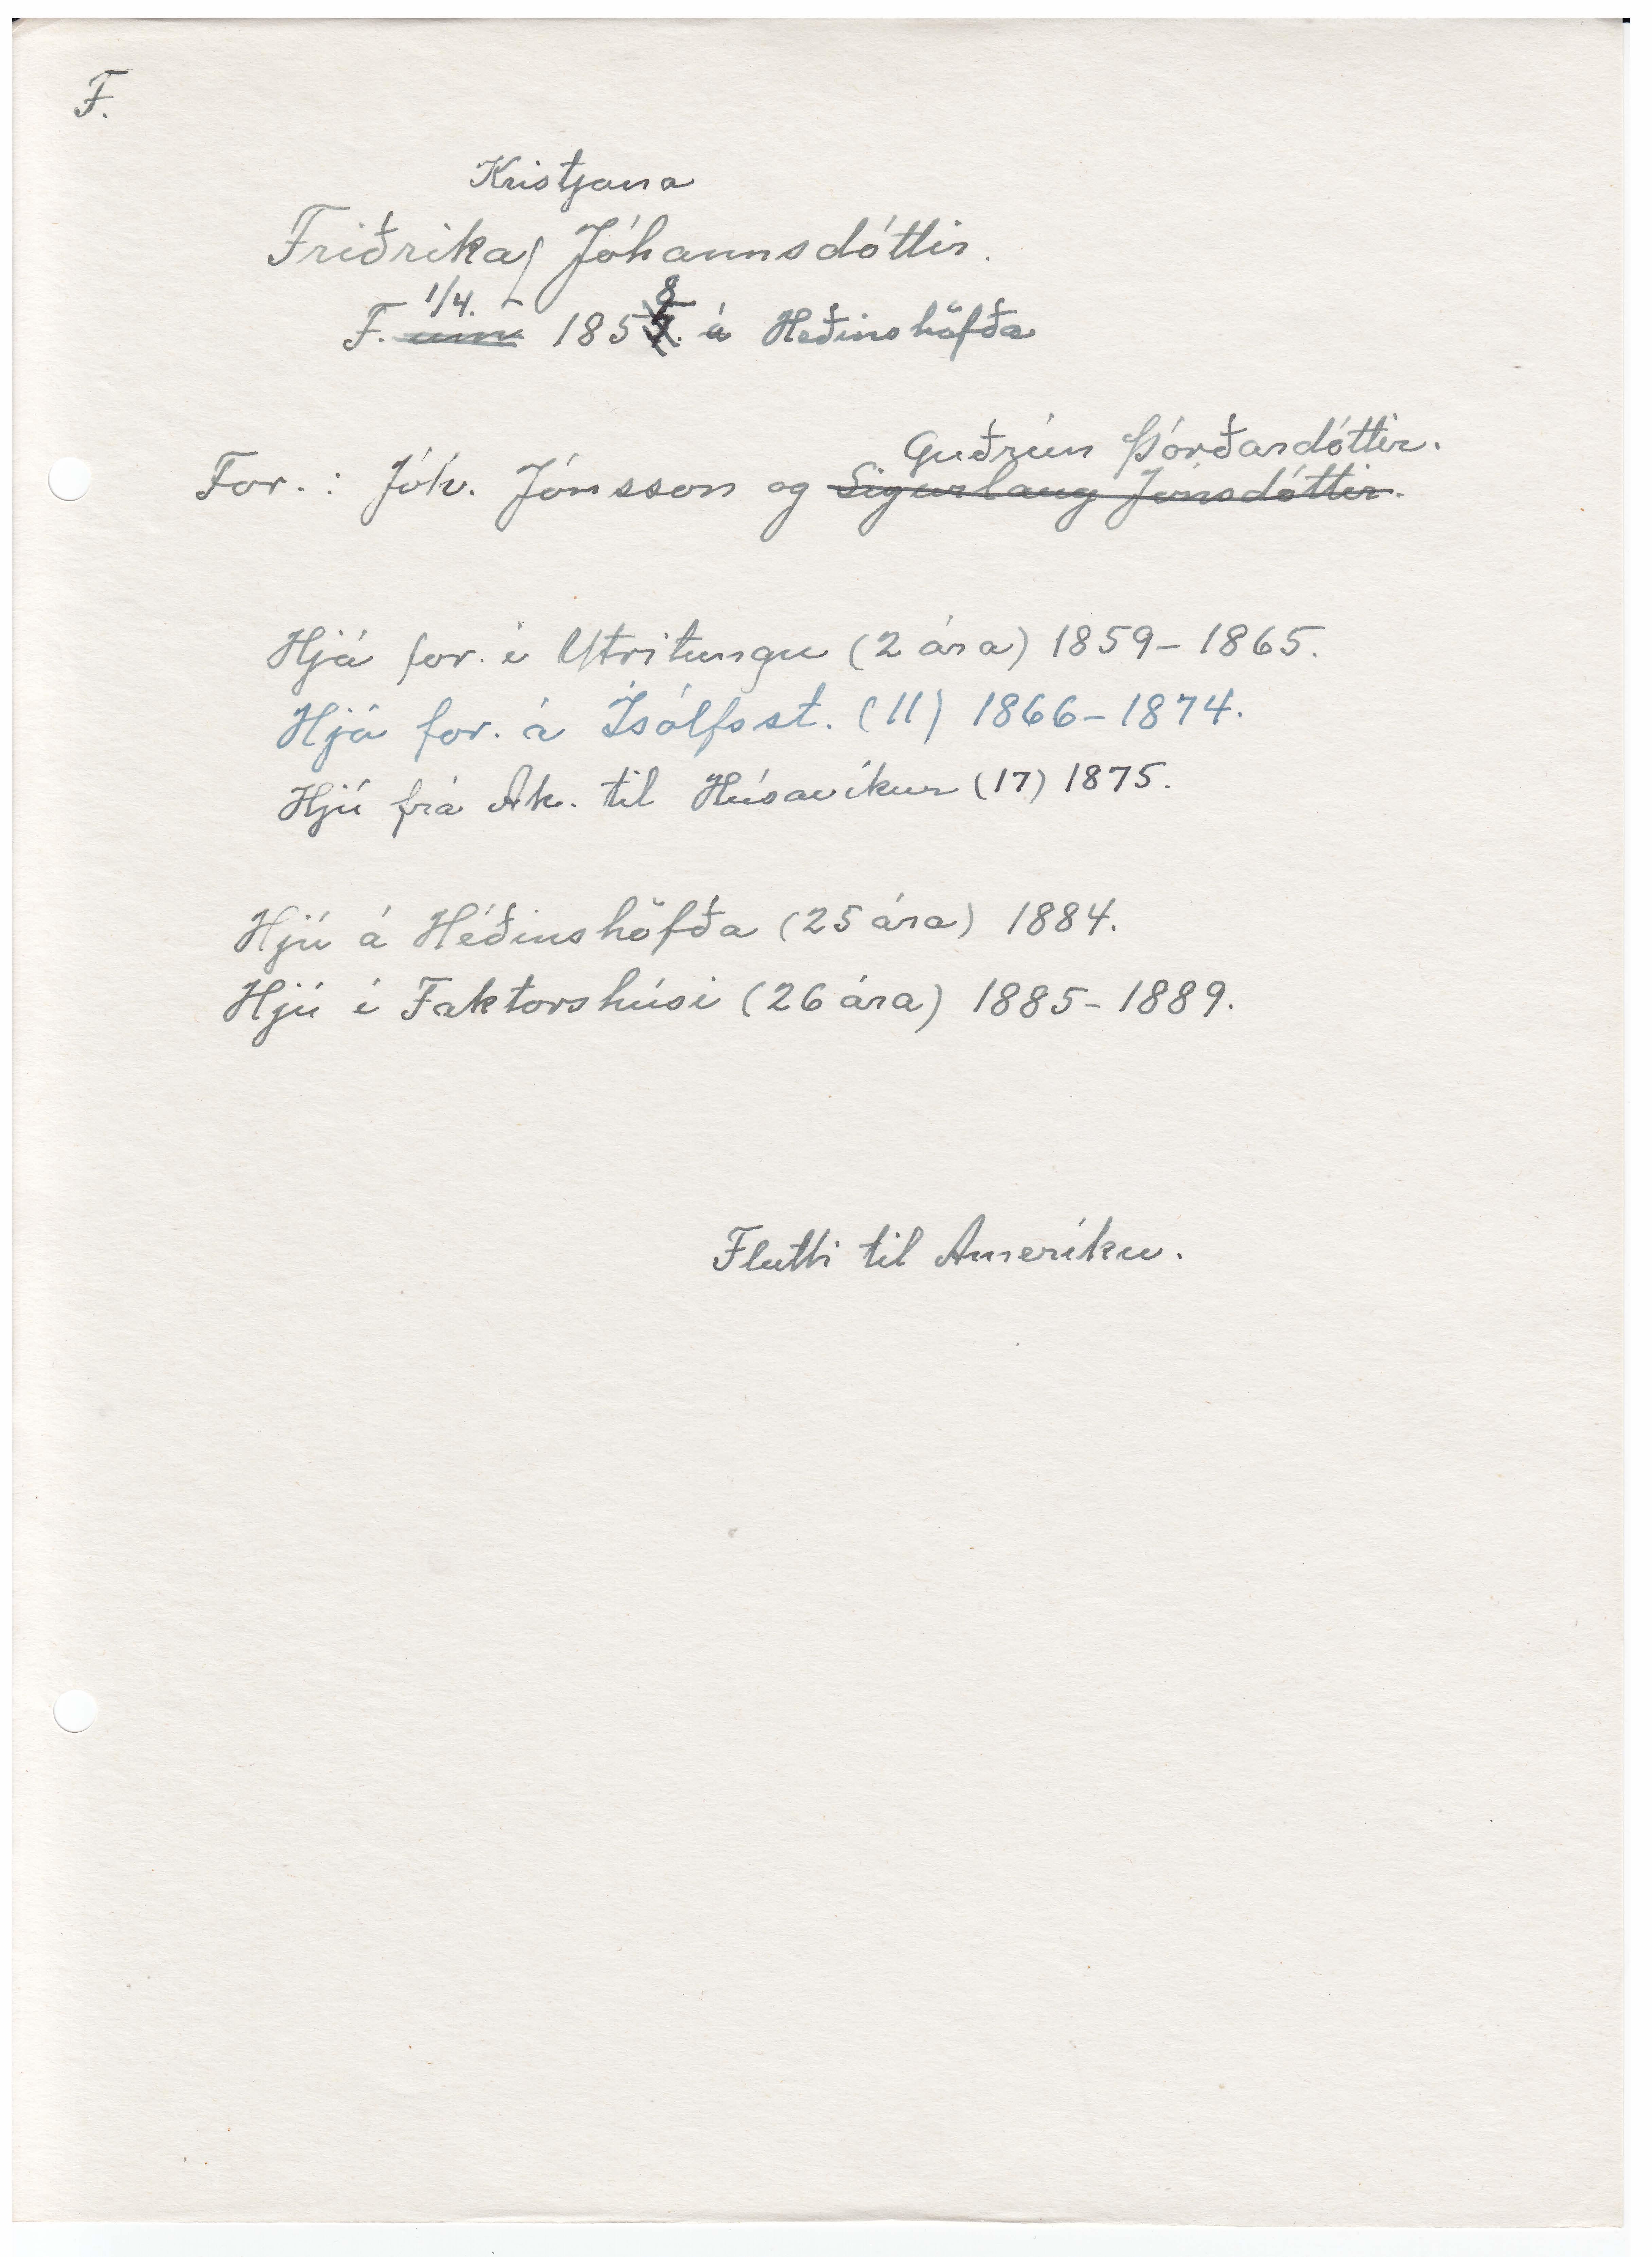 F.
Kristjana
Friðrika Jóhannsdóttir.
1/4. 8
F. um 185 á Héðinshöfða
Guðrún Þórðardóttir.
For.: Jóh. Jónsson og Sigurlaug Jónsdóttir.
Hjá for. í Ytritungu (2 ára) 1859-1865.
Hjá for. á Ísólfsst. (11) 1866-1874.
Hjú frá Ak. til Húsavíkur (17) 1875.
Hjú á Héðinshöfða (25 ára) 1884.
Hjú í Faktorshúsi (26 ára) 1885-1889.
Flutti til Ameríku.